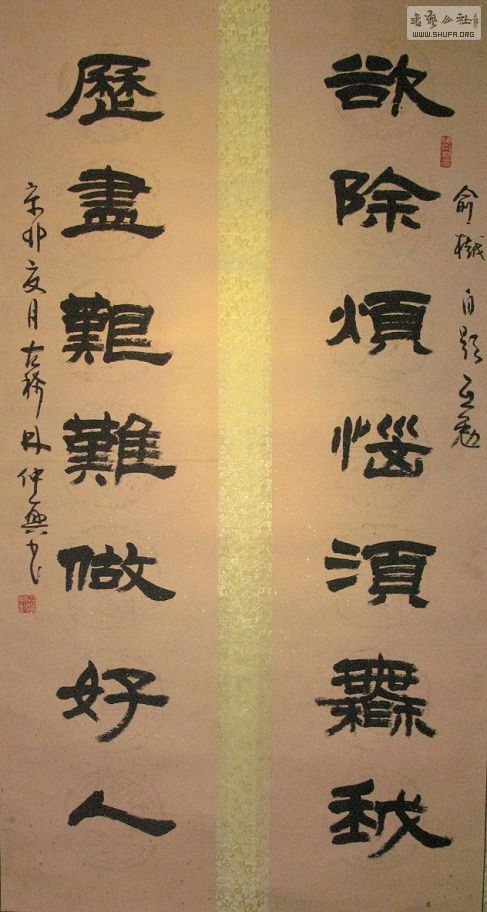 書藝公社
WWW.SHUFA.ORG
俞樾自題互勉
欲除煩惱須無我
歷盡艱難做好人
辛卯夏月古稀林仲興书